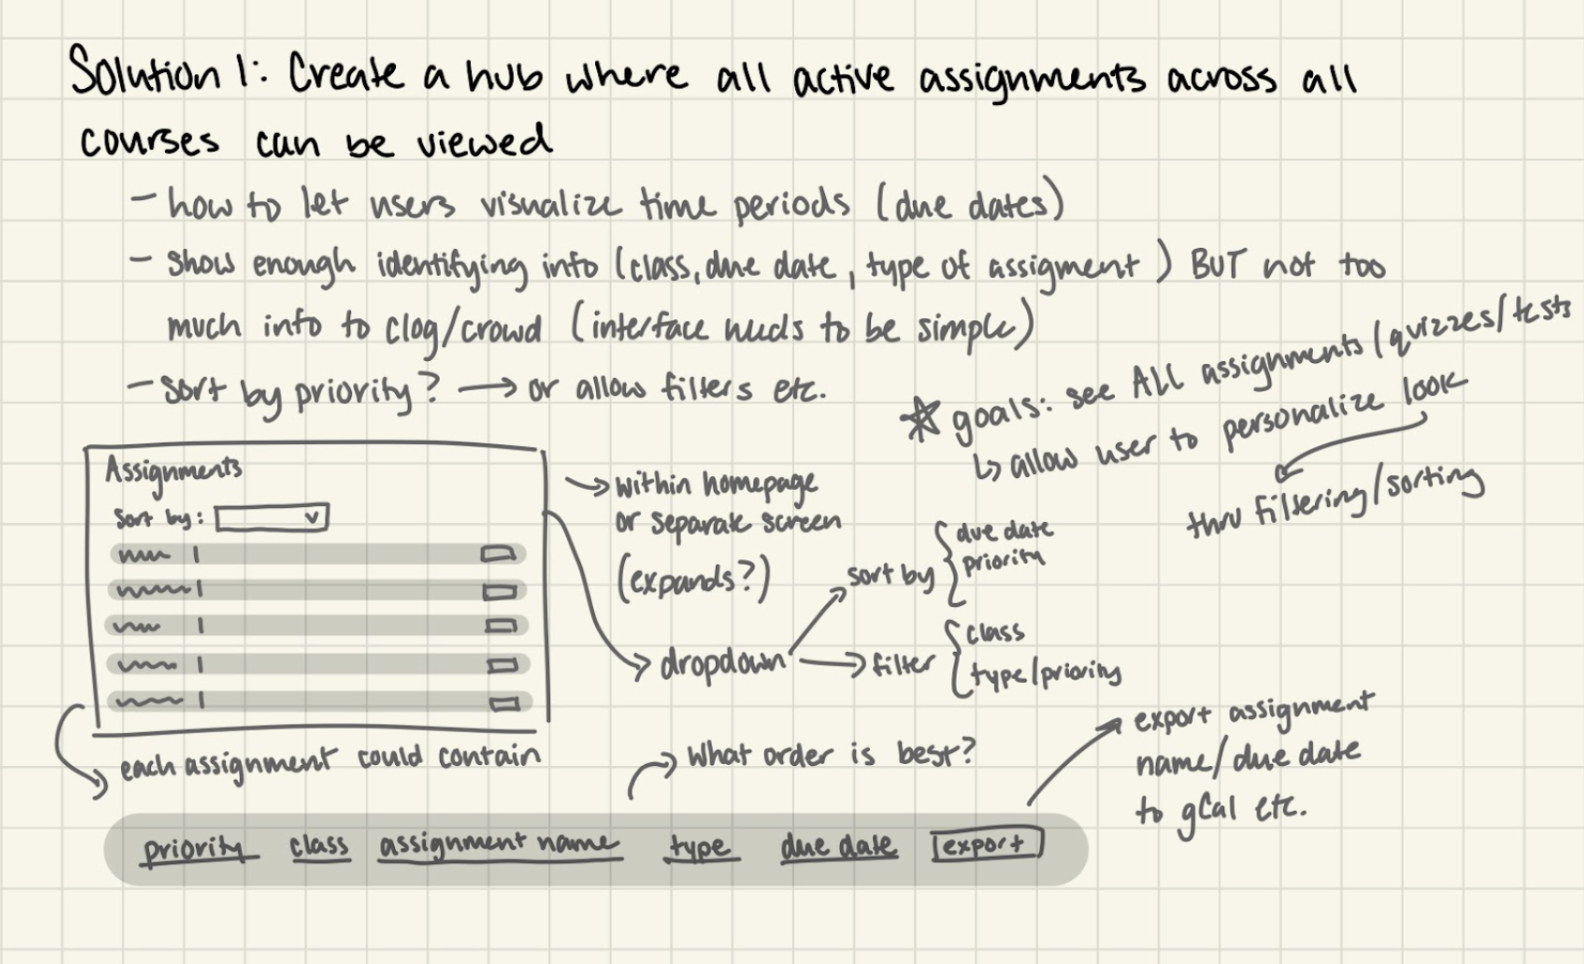 Solution 1: Create a hub where all active assignments across all
courses can be viewed
- how to let users visualize time periods (due dates)
- show enough identifying info (class, due date, type of assigment) BUT not too
much info to clog/crowd (interface needs to be simple)
- sort by priority? → or allow filters etc.
☆ goals: see ALL assignments/quizzes/tests
↳ allow user to personalize look
thru filtering/sorting
Assignments
Sort by:
→ within homepage
or separate screen
(expands?)
→ dropdown
sort by { due date
priority
→ filter { class
type/priority
each assignment could contain
→ What order is best?
export assignment
name/due date
to gCal etc.
priority class assignment name type due date export